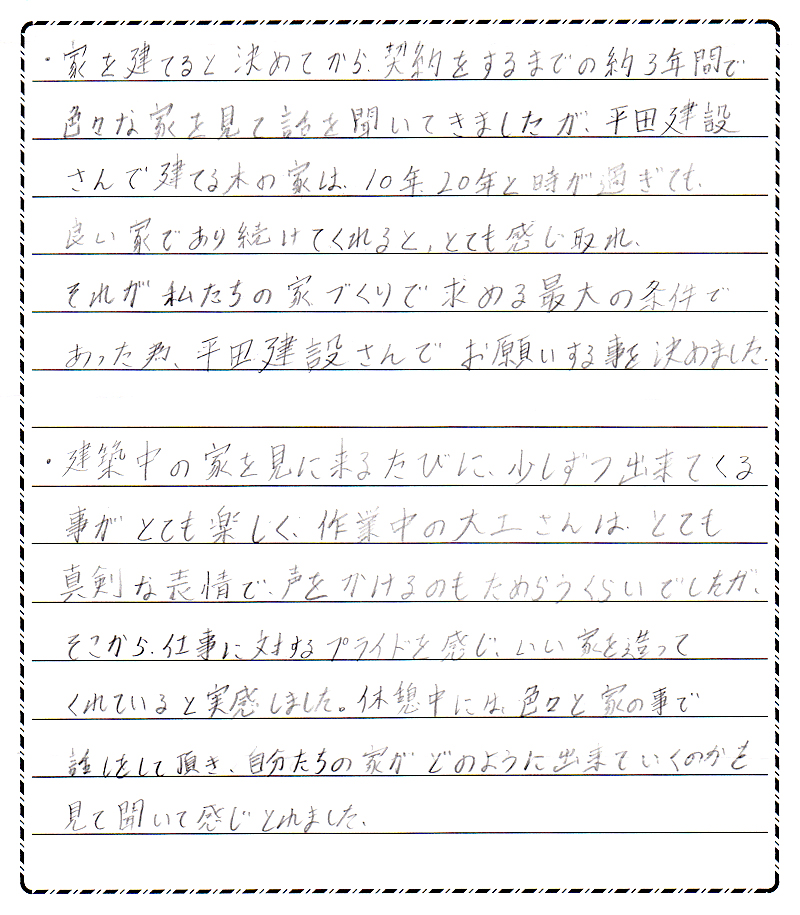 ・家を建てると決めてから、契約をするまでの約3年間で
色々な家を見て話を聞いてきましたが、平田建設
さんで建てる木の家は、10年、20年と時が過ぎても、
良い家であり続けてくれると、とても感じ取れ、
それが私たちの家づくりで求める最大の条件で
あった為、平田建設さんでお願いする事を決めました。
・建築中の家を見に来るたびに、少しずつ出来てくる
事がとても楽しく、作業中の大工さんは、とても
真剣な表情で、声をかけるのもためらうくらいでしたが、
そこから、仕事に対するプライドを感じ、いい家を造って
くれていると実感しました。休憩中には、色々と家の事で
話しをして頂き、自分たちの家がどのように出来ていくのかを
見て聞いて感じとれました。